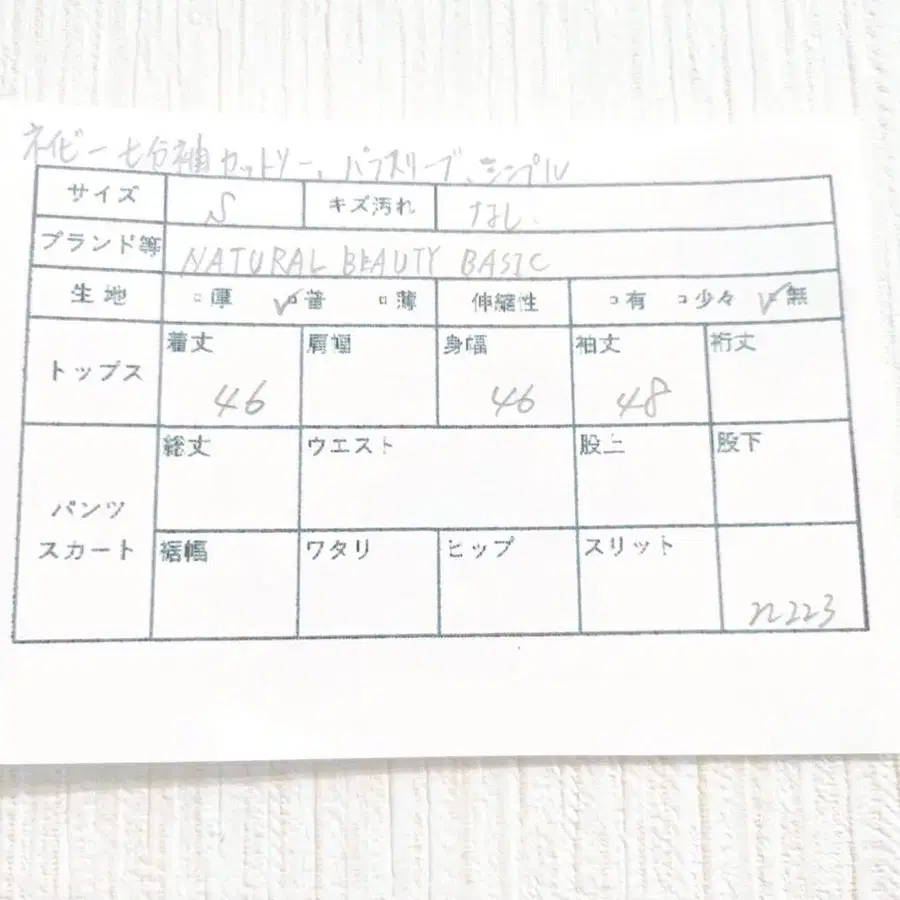 ネイビー七分袖カットソー、パフスリーブ、シンプル
サイズ S キズ汚れ なし
ブランド等 NATURAL BEAUTY BASIC
生地 □厚 ☑普 □薄 伸縮性 □有 □少々 ☑無
トップス 着丈 46 肩幅 身幅 46 袖丈 48 裄丈
パンツ スカート 総丈 ウエスト 股上 股下
裾幅 ワタリ ヒップ スリット n223